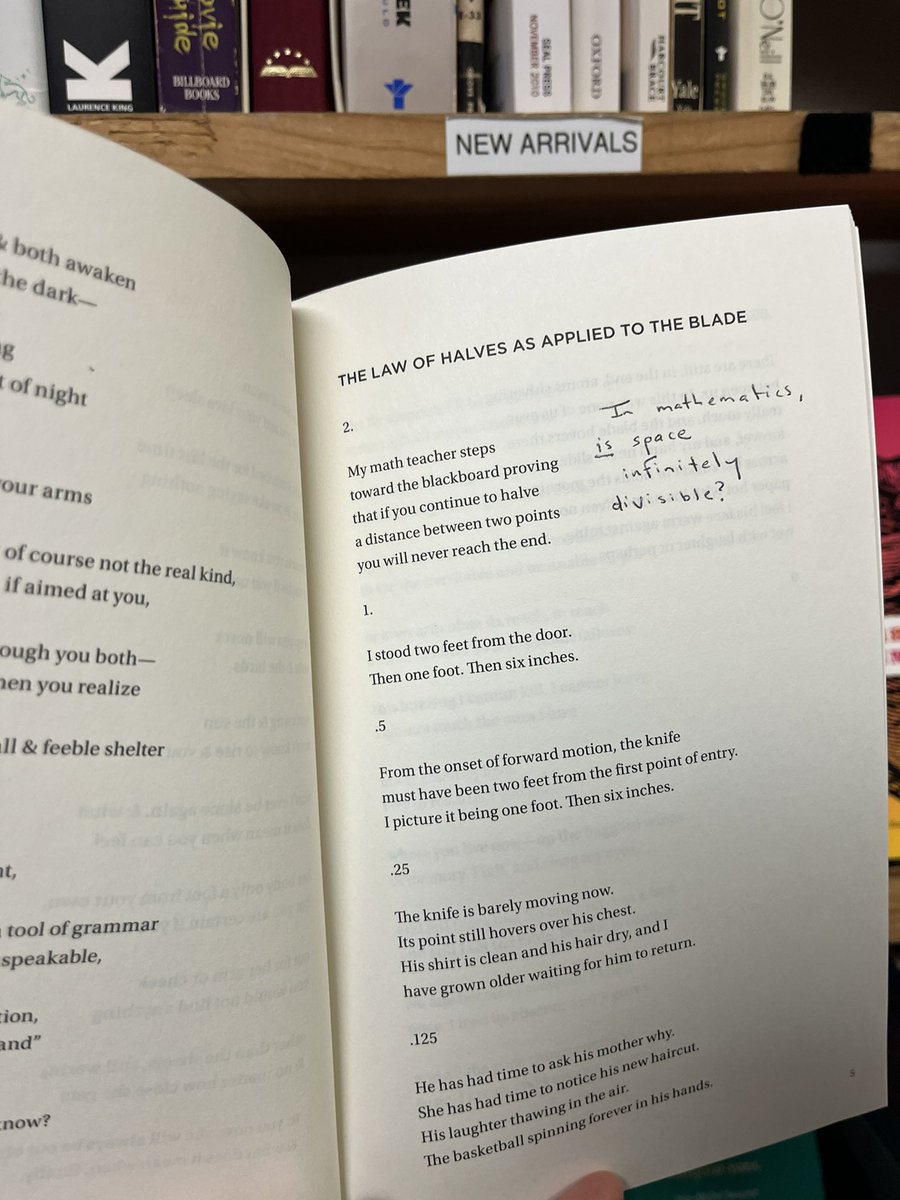 LAURENCE KING
BILLBOARD
BOOKS
SEAL PRESS
NOVEMBER 2010
OXFORD
HARCOURT
BRACE
Yale
O'Neill
NEW ARRIVALS
& both awaken
the dark—
t of night
our arms
of course not the real kind,
if aimed at you,
ough you both—
hen you realize
all & feeble shelter
tool of grammar
speakable,
tion,
and”
know?
THE LAW OF HALVES AS APPLIED TO THE BLADE
2.
My math teacher steps
toward the blackboard proving
that if you continue to halve
a distance between two points
you will never reach the end.
In mathematics,
is space
infinitely
divisible?
1.
I stood two feet from the door.
Then one foot. Then six inches.
.5
From the onset of forward motion, the knife
must have been two feet from the first point of entry.
I picture it being one foot. Then six inches.
.25
The knife is barely moving now.
Its point still hovers over his chest.
His shirt is clean and his hair dry, and I
have grown older waiting for him to return.
.125
He has had time to ask his mother why.
She has had time to notice his new haircut.
His laughter thawing in the air.
The basketball spinning forever in his hands.
5